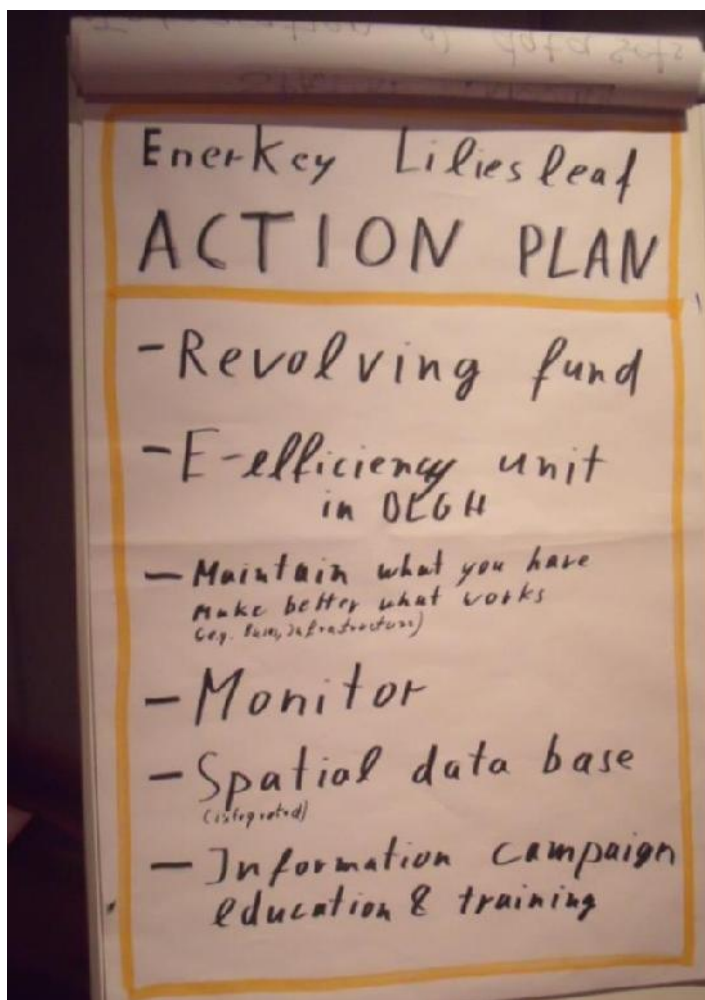 EnerKey Liliesleaf
ACTION PLAN
- Revolving fund
- E-efficiency unit
in DLGH
- Maintain what you have
make better what works
(e.g. infrastructure)
- Monitor
- Spatial data base
(integrated)
- Information campaign
education & training